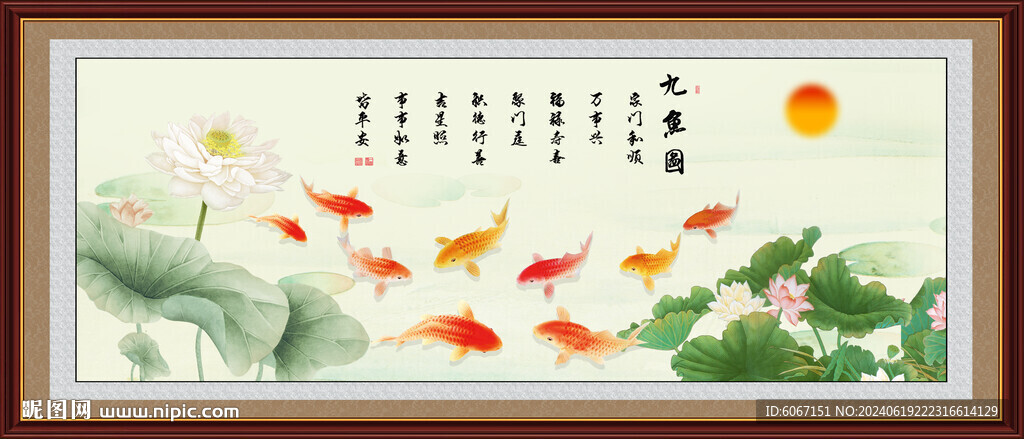 九鱼图
家门和顺
万事兴
福禄寿喜
聚门庭
积德行善
吉星照
事事如意
皆平安
昵图网 www.nipic.com
ID:6067151 NO:20240619222316614129